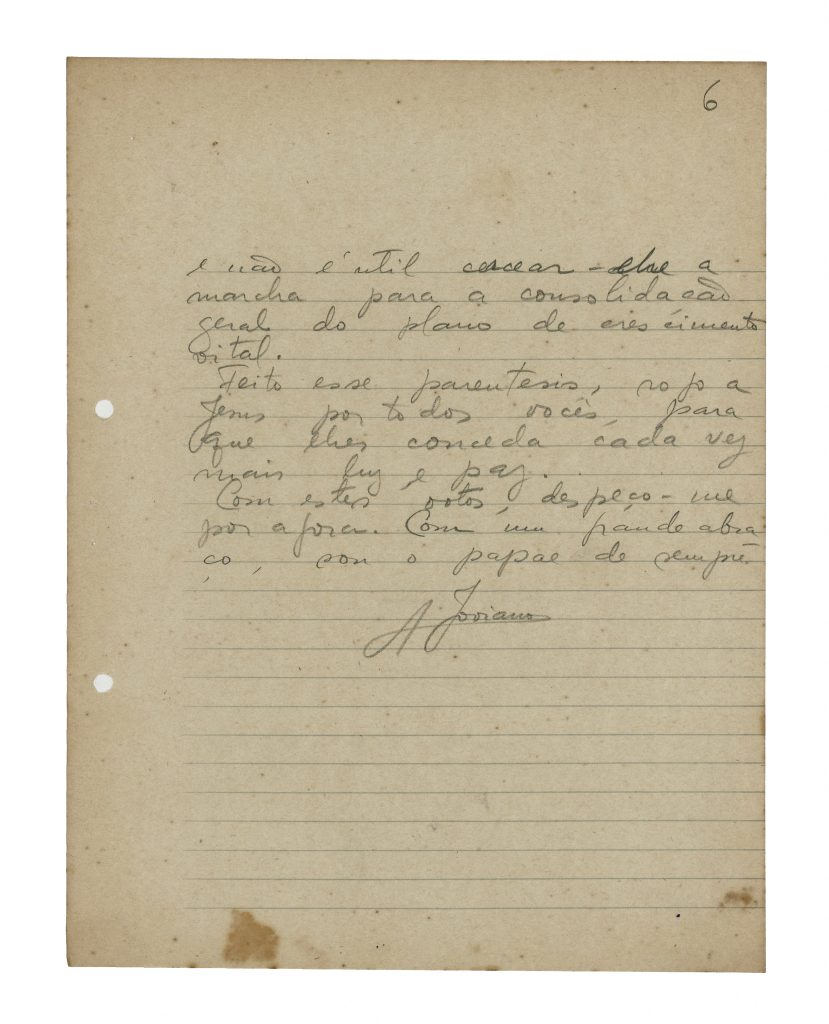 6
e não é util cercear-lhe a
marcha para a consolidação
geral do plano de crescimento
vital.
Feito esse parentesis, rogo a
Jesus por todos vocês, para
que lhes conceda cada vez
mais luz e paz.
Com estes votos, despeço-me
por agora. Com um grande abra
ço, sou o papae de sempre.
A Joviano